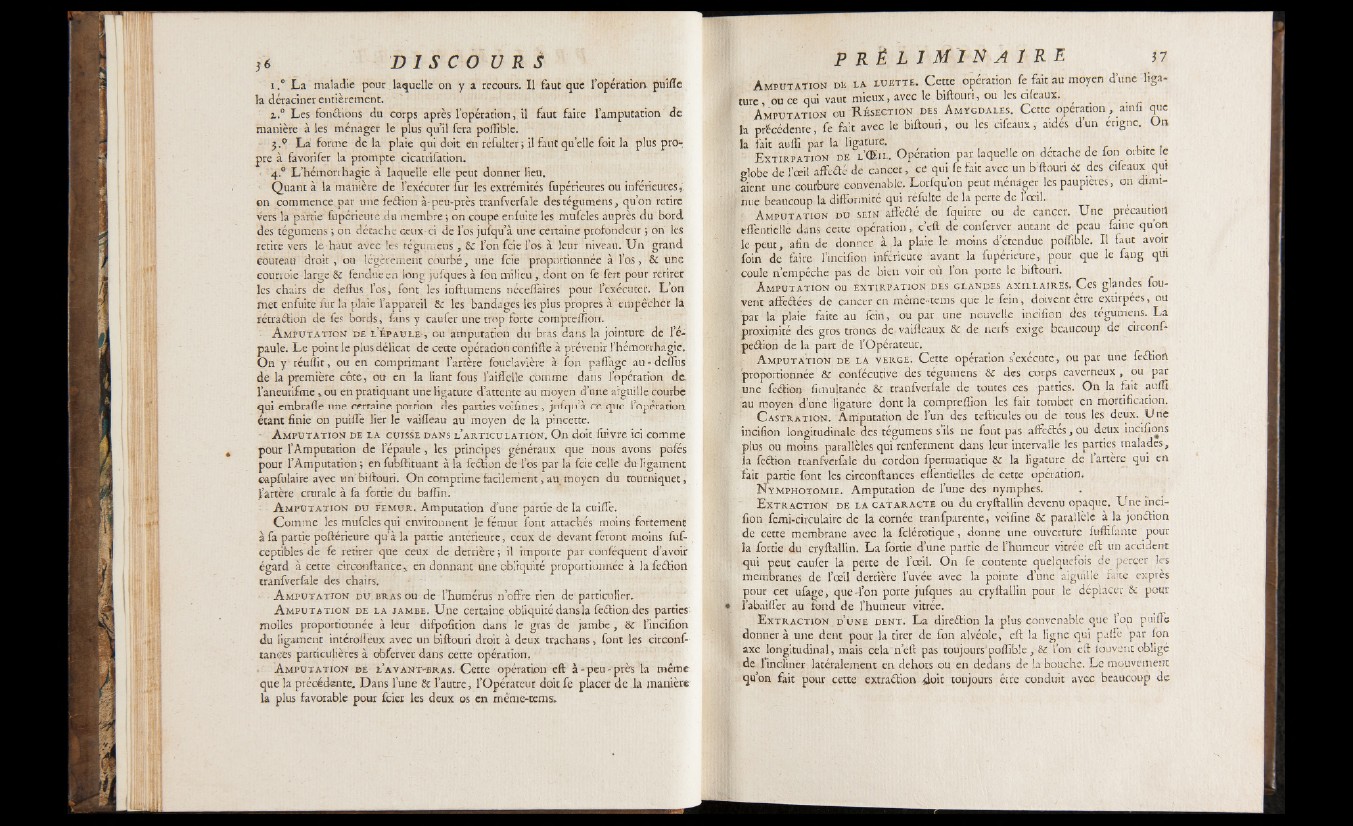 36 DISCOURS
1.° La maladie pour laquelle on y a recours. Il faut que l'opération puiſſe
la déraciner entièrement.
2.° Les fonctions du corps après l'opération, il faut faire l'amputation de
manière à les ménager le plus qu'il ſera poſſible.
3.° La forme de la plaie qui doit en réſulter; il faut qu'elle ſoit la plus pro-
pre à favoriſer la prompte cicatriſation.
4.° L'hémorrhagie à laquelle elle peut donner lieu.
Quant à la manière de l'exécuter ſur les extrémités ſupérieures ou inférieures,
on commence par une ſection à-peu-près tranſverſale des tégumens, qu'on retire
vers la partie ſupérieure du membre; on coupe enſuite les muſcles auprès du bord
des tégumens; on détache ceux-ci de l'os juſqu'à une certaine profondeur; on les
retire vers le haut avec les tégumens, & l'on ſcie l'os à leur niveau. Un grand
couteau droit, ou légèrement courbé, une ſcie proportionnée à l'os, & une
courroie large & fendue en long juſques à ſon milieu, dont on ſe ſert pour retirer
les chairs de deſſus l'os, ſont les inſtrumens néceſſaires pour l'exécuter. L'on
met enſuite ſur la plaie l'appareil & les bandages les plus propres à empêcher la
rétraction de ſes bords, ſans y cauſer une trop forte compreſſion.
AMPUTATION DE L'ÉPAULE, ou amputation du bras dans la jointure de l'é-
paule. Le point le plus délicat de cette opération conſiſte à prévenir l'hémorrhagie.
On y réuſſit, ou en comprimant l'artère ſouclavière à ſon paſſage au-deſſus
de la première côte, ou en la liant ſous l'aiſſelle comme dans l'opération de
l'aneuriſme, ou en pratiquant une ligature d'attente au moyen d'une aiguille courbe
qui embraſſe une certaine portion des parties voiſines, juſqu'à ce que l'opération
étant finie on puiſſe lier le vaiſſeau au moyen de la pincette.
AMPUTATION DE LA CUISSE DANS L'ARTICULATION. On doit ſuivre ici comme
pour l'Amputation de l'épaule, les principes généraux que nous avons poſés
pour l'Amputation; en ſubſtituant à la ſection de l'os par la ſcie celle du ligament
capſulaire avec un biſtouri. On comprime facilement, au moyen du tourniquet,
l'artère crurale à ſa ſortie du baſſin.
AMPUTATION DU FEMUR. Amputation d'une partie de la cuiſſe.
Comme les muſcles qui environnent le fémur ſont attachés moins fortement
à ſa partie poſtérieure qu'à la partie antérieure, ceux de devant ſeront moins ſuſ-
ceptibles de ſe retirer que ceux de derrière; il importe par conſéquent d'avoir
égard à cette circonſtance, en donnant une obliquité proportionnée à la ſection
tranſverſale des chairs.
AMPUTATION DU BRAS ou de l'humérus n'offre rien de particulier.
AMPUTATION DE LA JAMBE. Une certaine obliquité dans la ſection des parties
molles proportionnée à leur diſpoſition dans le gras de jambe, & l'inciſion
du ligament intéroſſeux avec un biſtouri droit à deux trachans, ſont les circonſ-
tances particulières à obſerver dans cette opération.
AMPUTATION DE L'AVANT-BRAS. Cette opération eſt à-peu-près la même
que la précédente. Dans l'une & l'autre, l'Opérateur doit ſe placer de la manière
la plus favorable pour ſcier les deux os en même-tems.
PRÉLIMINAIRE 37
AMPUTATION DE LA LUETTE. Cette opération ſe fait au moyen d'une liga-
ture, ou ce qui vaut mieux, avec le biſtouri, ou les ciſeaux.
AMPUTATION OU RÉSECTION DES AMYGDALES. Cette opération, ainſi que
la précédente, ſe fait avec le biſtouri, ou les ciſeaux, aidés d'un érigne. On
la fait auſſi par la ligature.
EXTIRPATION DE L'ŒIL. Opération par laquelle on détache de ſon orbite le
globe de l'œil affecté de cancer, ce qui ſe fait avec un b ſtouri & des ciſeaux qui
aient une courbure convenable. Lorſqu'on peut ménager les paupières, on dimi-
nue beaucoup la difformité qui réſulte de la perte de l'œil.
AMPUTATION DU SEIN affecté de ſquirre ou de cancer. Une précaution
eſſentielle dans cette opération, c'eſt de conſerver autant de peau ſaine qu'on
le peut, afin de donner à la plaie le moins d'étendue poſſible. Il faut avoir
ſoin de faire l'inciſion inférieure avant la ſupérieure, pour que le ſang qui
coule n'empêche pas de bien voir où l'on porte le biſtouri.
AMPUTATION OU EXTIRPATION DES GLANDES AXILLAIRES. Ces glandes ſou-
vent affectées de cancer en même-tems que le ſein, doivent être extirpées, ou
par la plaie faite au ſein, ou par une nouvelle inciſion des tégumens. La
proximité des gros troncs de vaiſſeaux & de nerfs exige beaucoup de circonſ-
pection de la part de l'Opérateur.
AMPUTATION DE LA VERGE. Cette opération s'exécute, ou par une ſection
proportionnée & conſécutive des tégumens & des corps caverneux, ou par
une ſection ſimultanée & tranſverſale de toutes ces parties. On la fait auſſi
au moyen d'une ligature dont la compreſſion les fait tomber en mortification.
CASTRATION. Amputation de l'un des teſticules ou de tous les deux. Une
inciſion longitudinale des tégumens s'ils ne ſont pas affectés, ou deux inciſions
plus ou moins parallèles qui renferment dans leur intervalle les parties malades,
la ſection tranſverſale du cordon ſpermatique & la ligature de l'artère qui en
fait partie ſont les circonſtances eſſentielles de cette opération.
NYMPHOTOMIE. Amputation de l'une des nymphes.
EXTRACTION DE LA CATARACTE ou du cryſtallin devenu opaque. Une inci-
ſion ſemi-circulaire de la cornée tranſparente, voiſine & parallèle à la jonction
de cette membrane avec la ſclérotique, donne une ouverture ſuffiſante pour
la ſortie du cryſtallin. La ſortie d'une partie de l'humeur vitrée eſt un accident
qui peut cauſer la perte de l'œil. On ſe contente quelquefois de percer les
membranes de l'œil derrière l'uvée avec la pointe d'une aiguille faite exprès
pour cet uſage, que l'on porte juſques au cryſtallin pour le déplacer & pour
l'abaiſſer au fond de l'humeur vitrée.
EXTRACTION D'UNE DENT. La direction la plus convenable que l'on puiſſe
donner à une dent pour la tirer de ſon alvéole, eſt la ligne qui paſſe par ſon
axe longitudinal, mais cela n'eſt pas toujours poſſible, & l'on eſt ſouvent obligé
de l'incliner latéralement en dehors ou en dedans de la bouche. Le mouvement
qu'on fait pour cette extraction doit toujours être conduit avec beaucoup de